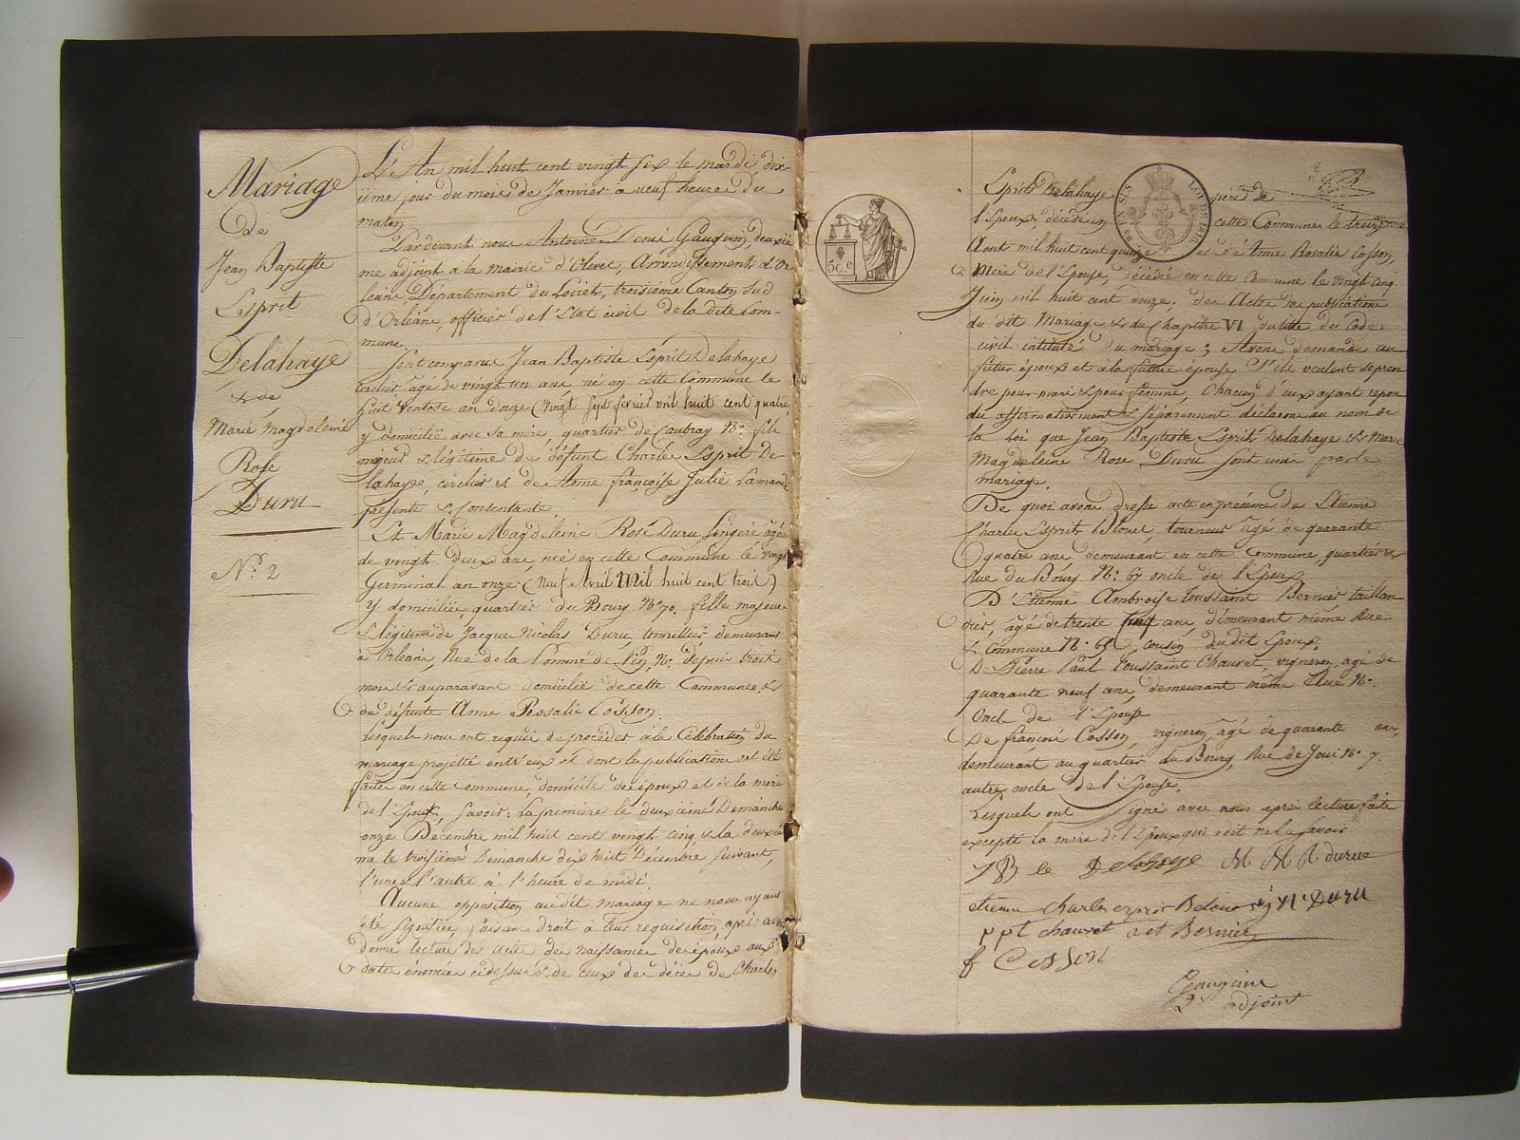 Mariage
De
Jean Baptiste
Esprit
Delahaye
& de
Marie Magdeleine
Rose
Duru
N.° 2
L'An mil huit cent vingt six le mardi dix-
ième jour du mois de Janvier à neuf heures du
matin
Pardevant nous Antoine René Gauguin, deuxiè
me adjoint à la mairie d'Olivet, Arrondissement d'Or
léans Département du Loiret, troisième Canton Sud
d'Orléans, officier de l'Etat civil de la dite Com-
mune.
Sont comparus Jean Baptiste Esprit Delahaye
âgé de vingt un ans, né en cette Commune le
huit Ventose an douze (Vingt sept fevrier mil huit cent quatre,
y domicilié avec sa mère, quartier de Couvray N.° fils
majeur & légitime de défunt Charles Esprit De-
lahaye, cerclier & de Anne françoise Julie Lamand
présente & consentante.
Et Marie Magdeleine Rose Duru lingère âgée
de vingt deux ans née en cette Commune le vingt
Germinal an onze (Neuf Avril Mil huit cent trois)
y domiciliée, quartier du Bourg N.° 70, fille majeure
& légitime de Jacques Nicolas Duru, tonnellier, demeurant
à Orléans, Rue de la Pomme de Pin, N.° depuis trois
mois & auparavant domicilié de cette Commune, &
de défunte Anne Rosalie Cosson.
Lesquels nous ont requis de procéder à la Célébration du
mariage projetté entr'eux et dont les publications ont été
faites en cette Commune, domicile des époux et de la mère
de l'Epoux, Savoir: La première le deuxième Dimanche
onze Décembre mil huit cent vingt cinq, & la deuxiè
me le troisième Dimanche dix huit Décembre suivant,
l'une & l'autre à l'heure de midi.
Aucune opposition au dit mariage ne nous ayant
été signifiée, faisant droit à leur requisition, après avoir
donné lecture des actes de naissances des époux aux
dates énoncées ci dessus & de ceux de décès de Charles
Esprit Delahaye père de
l'Epoux, décédé en cette Commune le treize
Aout mil huit cent quinze et de Anne Rosalie Cosson,
Mère de l'Epouse, décédée en cette Commune le vingt cinq
Juin mil huit cent douze. des Actes de publications
du dit Mariage & du chapitre VI du titre du Code
civil intitulé du mariage; Avons demandé au
futur époux et à la future épouse s'ils veulent se pren
dre pour mari & pour femme, Chacun d'eux ayant repon
du affirmativement & séparément déclarons au nom de
la Loi que Jean Baptiste Esprit Delahaye & Marie
Magdeleine Rose Duru sont unis par le
mariage.
De quoi avons dressé acte en présence de Etienne
Charles Esprit Belouet, tourneur âgé de quarante
quatre ans demeurant en cette Commune quartier &
Rue du Bourg N.° 67 oncle de l'Epoux
D'Etienne Ambroise toussaint Bernier taillan
dier, âgé de trente ans, demeurant même Rue
& Commune N.° cousin du dit Epoux,
De Pierre Paul toussaint Chauvet, vigneron, âgé de
quarante neuf ans, demeurant même Rue N.°
oncle de l'Epouse
De françois Cosson vigneron, âgé de quarante ans,
demeurant au quartier du Bourg, Rue de Joui N.° 7
autre oncle de l'Epouse.
Lesquels ont signé avec nous après lecture faite
excepté la mère de l'Epoux qui a dit ne le savoir
J B e Delahaye M M R durue
etienne charles esprit Belouet j N Duru
p p t chauvet a e t Bernier
f Cosson
Gauguin
2e adjoint